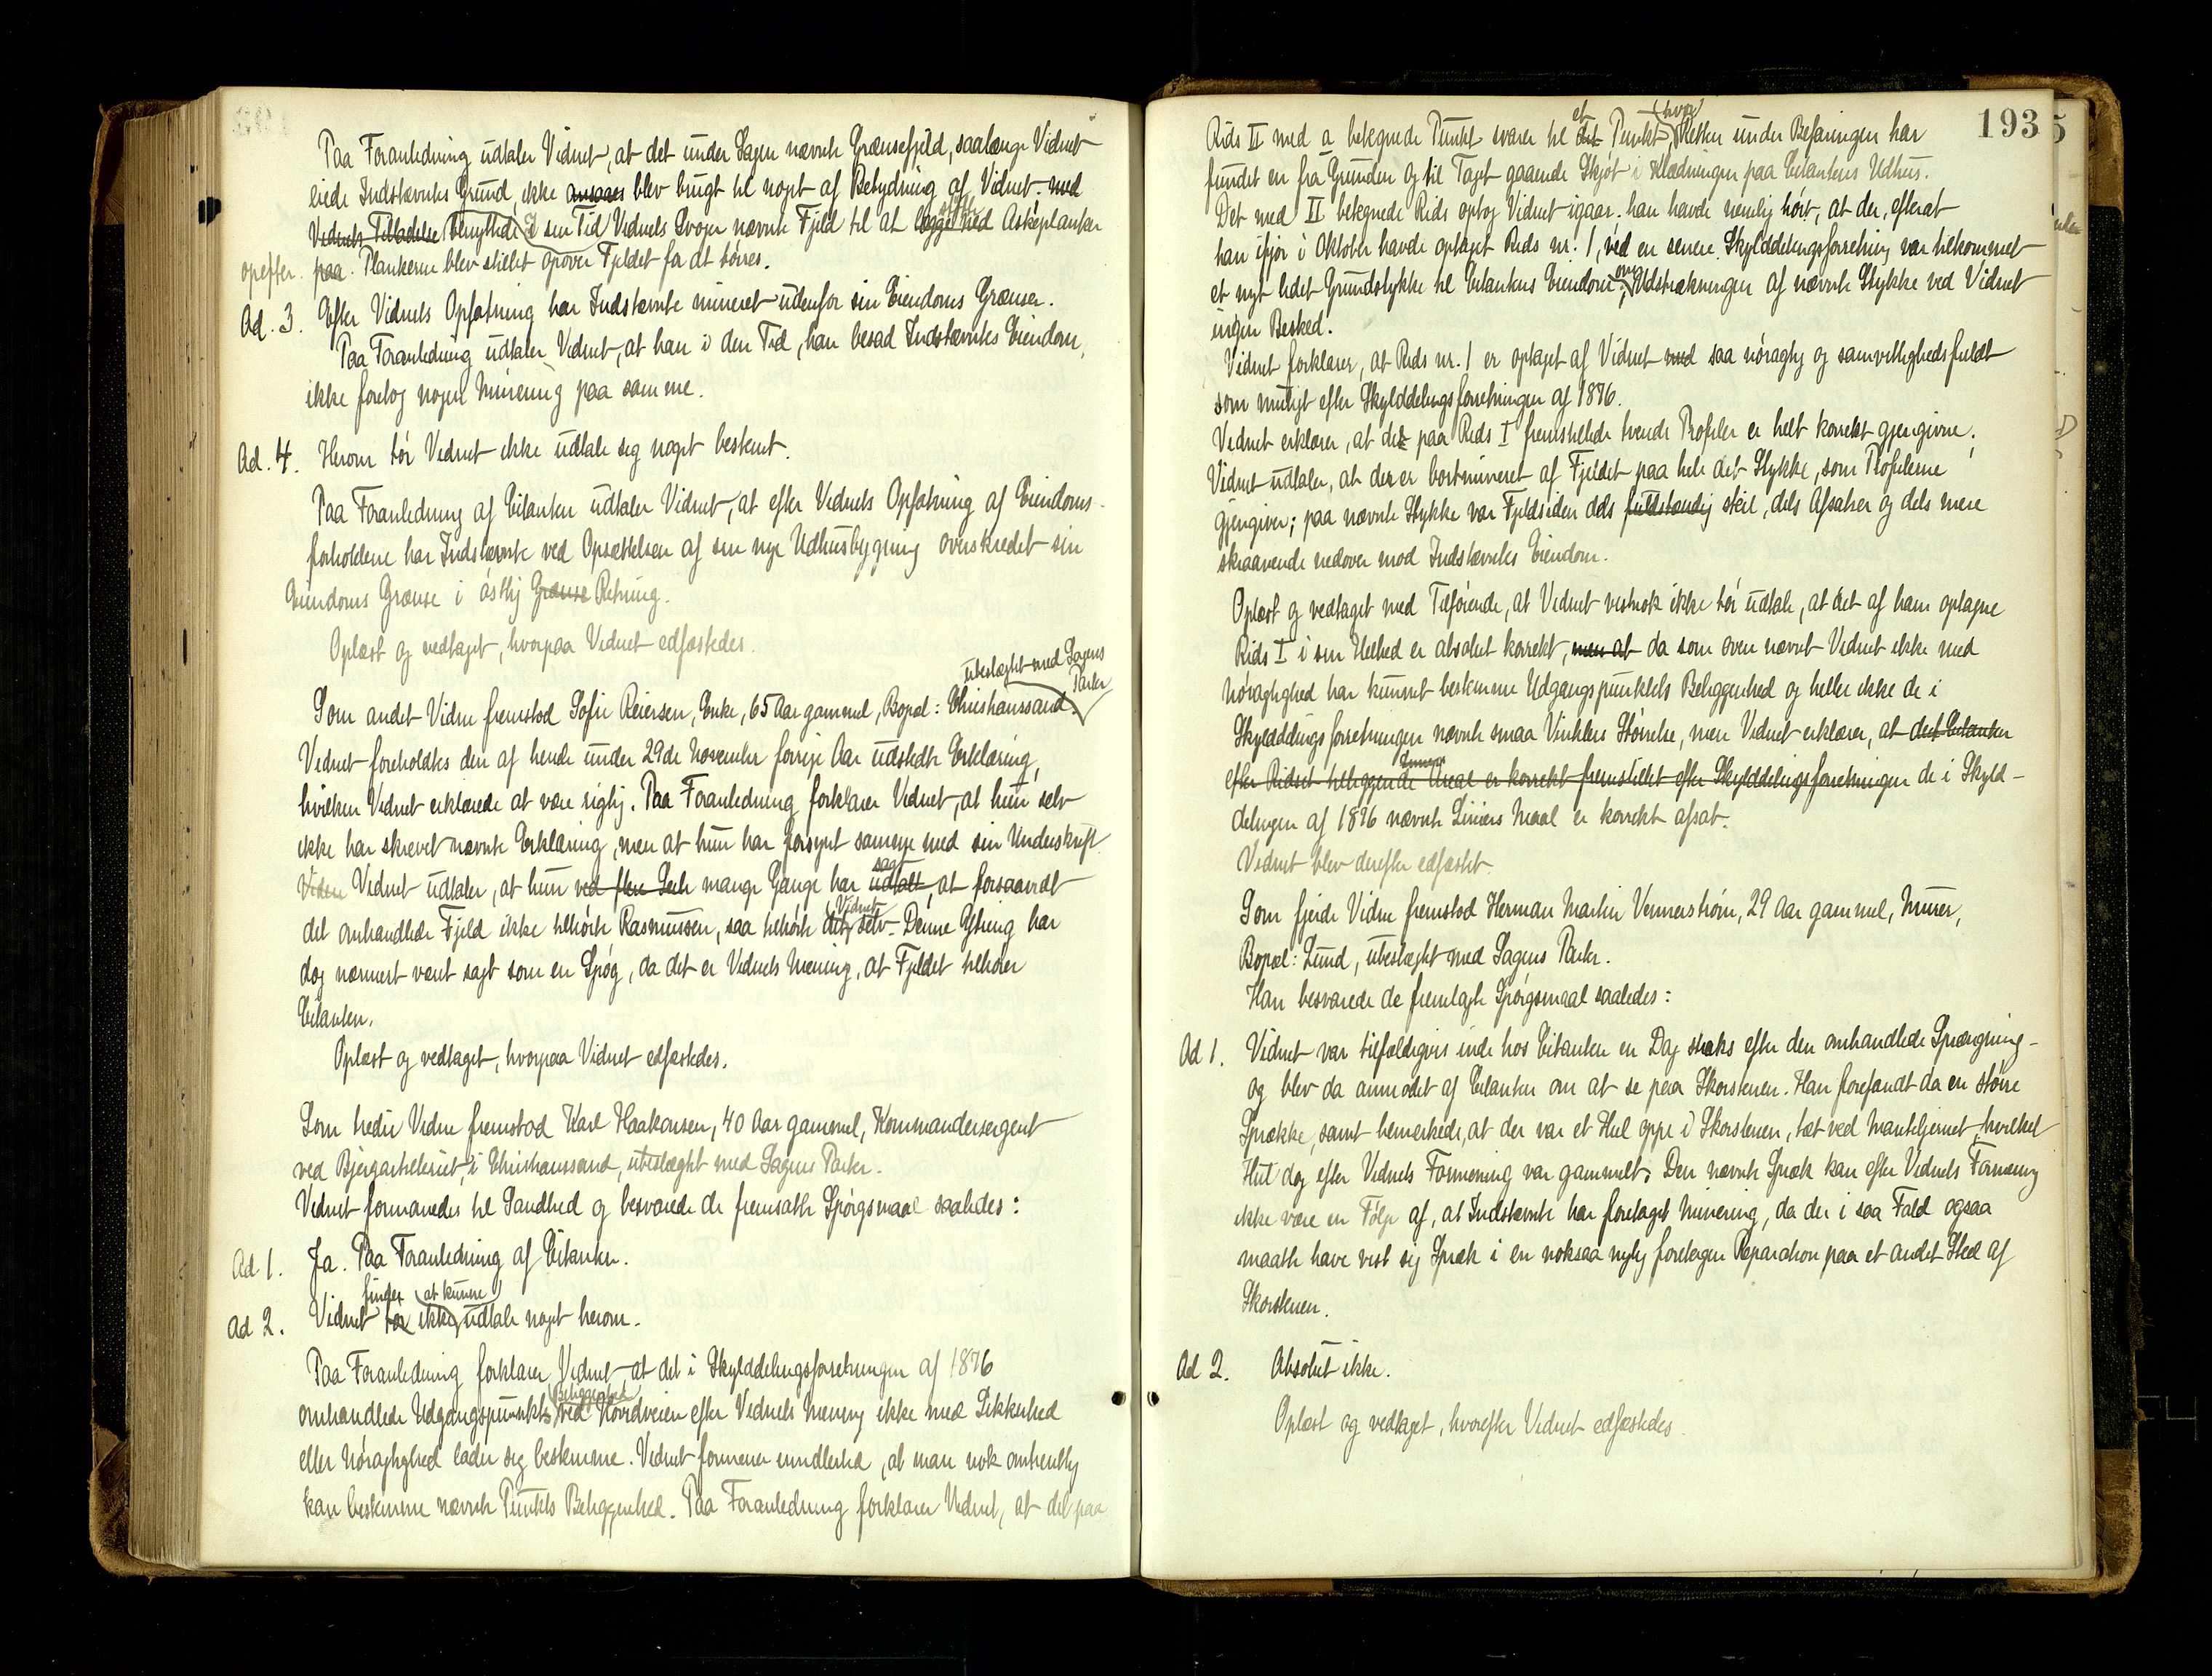 Paa Foranledning udtaler Vidnet, at det under Sagen nævnte Grænsefjeld, saalænge Vidnet
eiede Indstævntes Grund, ikke ansaaes blev brugt til noget af Betydning af Vidnet. med
Vidnets Tilladelse benyttede I sin Tid Vidnets Svoger nævnte Fjeld til at lægge ved Askeplanker
opefter. paa. Plankerne blev stillet opover Fjeldet for at tørres.
Ad. 3. Efter Vidnets Opfatning har Indstævnte mineret udenfor sin Eiendoms Grænser.
Paa Foranledning udtaler Vidnet, at han i den Tid, han besad Indstævntes Eiendom,
ikke foretog nogen Minering paa samme.
Ad. 4. Herom tør Vidnet ikke udtale sig noget bestemt.
Paa Foranledning af Citanten udtaler Vidnet, at efter Vidnets Opfatning af Eiendoms-
forholdene har Indstævnte ved Opsættelsen af sin nye Udhusbygning overskredet sin
Eiendoms Grænse i østlig Grænse Retning.
Oplæst og vedtaget, hvorpaa Vidnet edfæstedes.
ubeslægtet med Sagens
Parter
Som andet Vidne fremstod Sofie Reiersen, Enke, 65 Aar gammel, Bopæl: Christianssand.
Vidnet foreholdtes den af hende under 29de November forrige Aar udstedte Erklæring,
hvilken Vidnet erklærede at være rigtig. Paa Foranledning forklarer Vidnet, at hun selv
ikke har skrevet nævnte Erklæring, men at hun har forsynt samme med sin Underskrift
Viden Vidnet udtaler, at hun ved flere mange Gange har udtalt sagt, at forsaavidt
det omhandlede Fjeld ikke tilhørte Rasmussen, saa tilhørte det Vidnet selv. Denne Ytring har
dog nærmest været sagt som en Spøg, da det er Vidnets Mening, at Fjeldet tilhører
Citanten.
Oplæst og vedtaget, hvorpaa Vidnet edfæstedes.
Som tredie Vidne fremstod Karl Haakonsen, 40 Aar gammel, Kommandersergent
ved Bjergartilleriet, i Christianssand, ubeslægtet med Sagens Parter.
Vidnet formanedes til Sandhed og besvarede de fremsatte Spørgsmaal saaledes:
Ad 1. Ja. Paa Foranledning af Citanten.
finder at kunne
Ad 2. Vidnet tør ikke udtale noget herom.
Paa Foranledning forklarer Vidnet, at det i Skylddelingsforretningen af 1876
omhandlede Udgangspunkts Beliggenhed ved Hovedveien efter Vidnets Mening ikke med Sikkerhed
eller Nøiagtighed lader sig bestemme. Vidnet formener imidlertid, at man nok omtrentlig
kan bestemme nævnte Punkts Beliggenhed. Paa Foranledning forklarer Vidnet, at det paa
193
Rids II med a betegnede Punkt svarer til det et Punkt, hvor Retten under Befaringen har
fundet en fra Grunden og til Taget gaaende Skjøt i Klædningen paa Citantens Udhus.
Det med II betegnede Rids optog Vidnet igaar. han havde nemlig hørt, at der, efterat
han ifjor i Oktober havde optaget Rids nr. 1, ved en senere Skylddelingsforretning var tilkommet
et nyt lidet Grundstykke til Citantens Eiendom; om Udstrækningen af nævnte Stykke ved Vidnet
ingen Besked.
Vidnet forklarer, at Rids nr. 1 er optaget af Vidnet med saa nøiagtig og samvittighedsfuldt
som muligt efter Skylddelingsforretningen af 1876.
Vidnet erklærer, at de paa Rids I fremstillede tvende Profiler er helt korrekt gjengivne;
Vidnet udtaler, at der er bortmineret af Fjeldet paa hele det Stykke, som Profilerne
gjengiver; paa nævnte Stykke var Fjeldsiden dels fuldstændig steil, dels Afsatser og dels mere
skraanende nedover mod Indstævntes Eiendom.
Oplæst og vedtaget med Tilføiende, at Vidnet vistnok ikke tør udtale, at det af ham optagne
Rids I i sin Helhed er absolut korrekt, men at da som oven nævnt Vidnet ikke med
Nøiagtighed har kunnet bestemme Udgangspunktets Beliggenhed og heller ikke de i
Skylddelingsforretningen nævnte smaa Vinklers Størrelse, men Vidnet erklærer, at det Citanten
efter Ridset tilliggende Areal er korrekt fremstillet efter Skylddelingsforretningen de i Skyld-
delingen af 1876 nævnte Liniers Maal er korrekt afsat.
Vidnet blev derefter edfæstet.
Som fjerde Vidne fremstod Herman Martin Vennerstrøm, 29 Aar gammel, Murer,
Bopæl: Lund, ubeslægtet med Sagens Parter.
Han besvarede de fremlagte Spørgsmaal saaledes:
Ad 1. Vidnet var tilfældigvis inde hos Citanten en Dag straks efter den omhandlede Sprængning-
og blev da anmodet af Citanten om at se paa Skorstenen. Han forefandt da en større
Sprække, samt bemerkede, at der var et Hul oppe i Skorstenen, tæt ved Manteljernet, hvilket
Hul dog efter Vidnets Formening var gammelt. Den nævnte Spræk kan efter Vidnets Formening
ikke være en Følge af, at Indstævnte har foretaget Minering, da der i saa Fald ogsaa
maatte have vist sig Spræk i en noksaa nylig foretagen Reparation paa et andet Sted af
Skorstenen.
Ad 2. Absolut ikke.
Oplæst og vedtaget, hvorefter Vidnet edfæstedes.